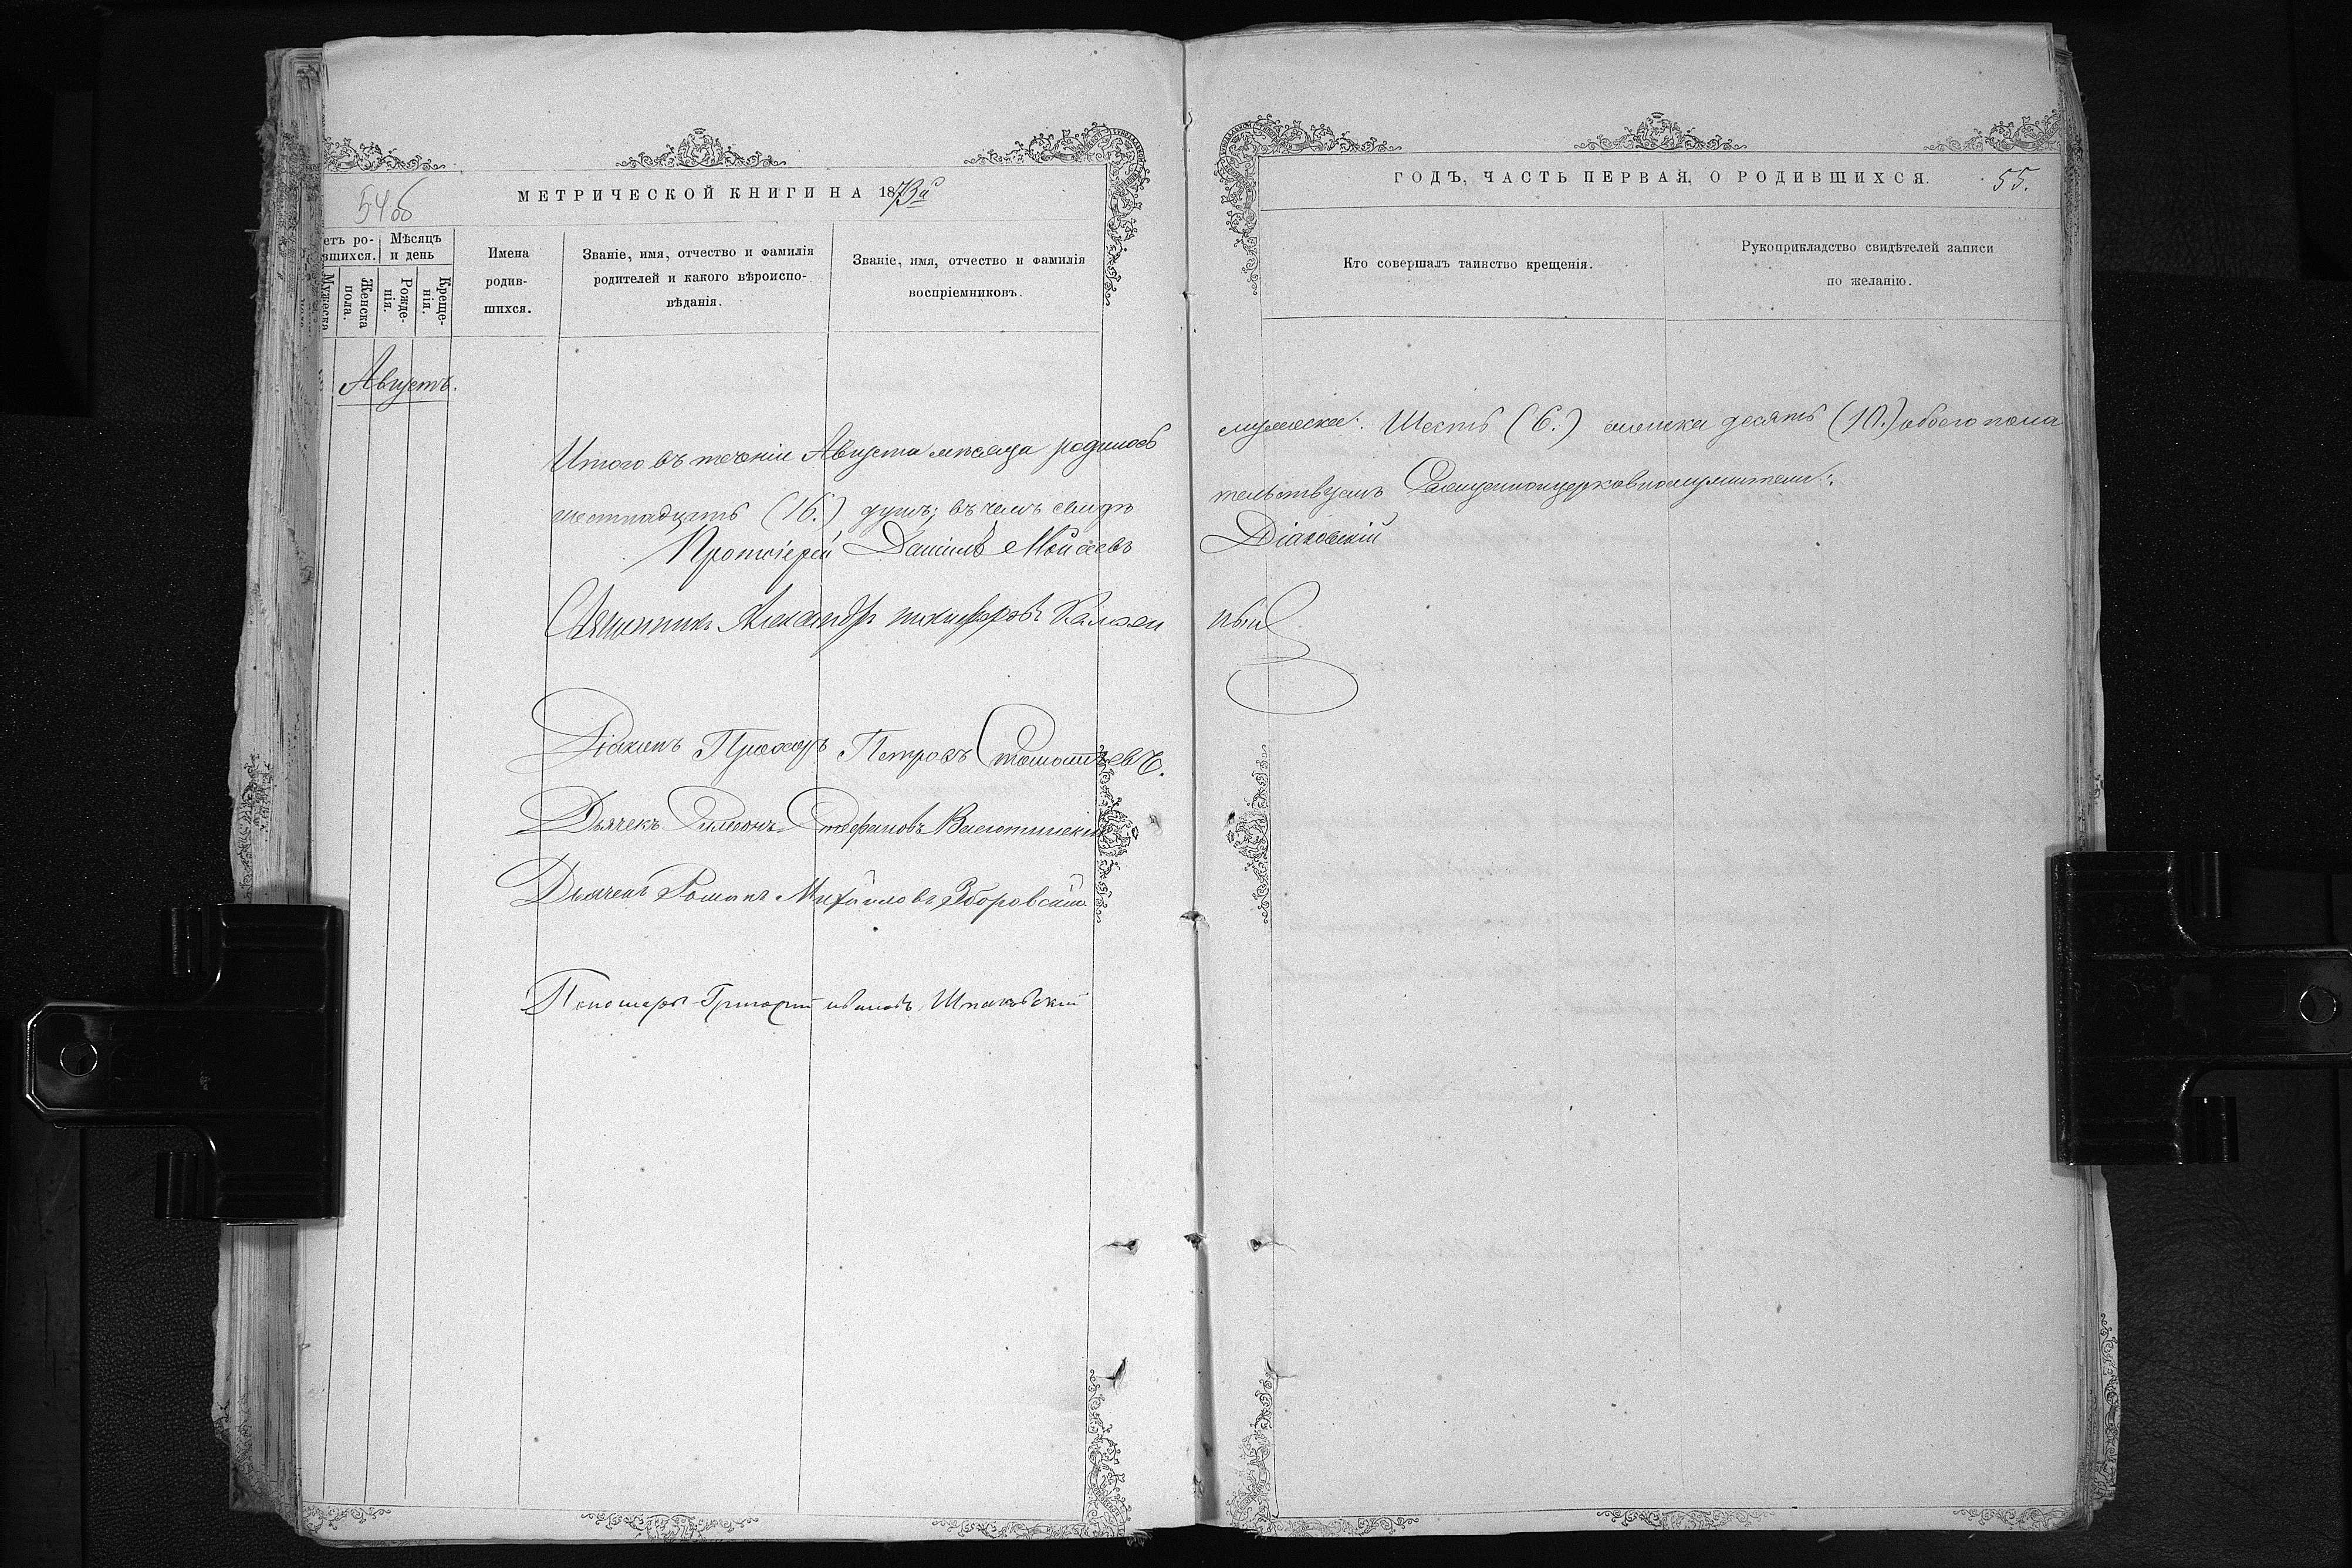 54об
МЕТРИЧЕСКОЙ КНИГИ НА 1873й
етъ ро-
вшихся.
Мѣсяцъ
и день
Мужеска
Женска
пола.
Рожде-
нія.
Креще-
нія.
Имена
родив-
шихся.
Званіе, имя, отчество и фамилія
родителей и какого вѣроиспо-
вѣданія.
Званіе, имя, отчество и фамилія
воспріемниковъ.
Августъ.
Итого въ теченіи Августа мѣсяца родилось
шестнадцать (16.) душъ; въ чемъ свидѣ
Протоіерей Даніилъ Моисеевъ
Священникъ Александръ
Діаконъ Прохоръ Петровъ
Дьячекъ Симеонъ Стефановъ
Дьячекъ Романъ Михайловъ Зборовскій
Пономарь Григорій Ивановъ Шпаковскій
ГОДЪ, ЧАСТЬ ПЕРВАЯ, О РОДИВШИХСЯ.
55.
Кто совершалъ таинство крещенія.
Рукоприкладство свидѣтелей записи
по желанію.
мужеска: Шесть (6.) женска десять (10.) обоего пола
тельствуемъ Священноцерковнослужители:
Діаковскій